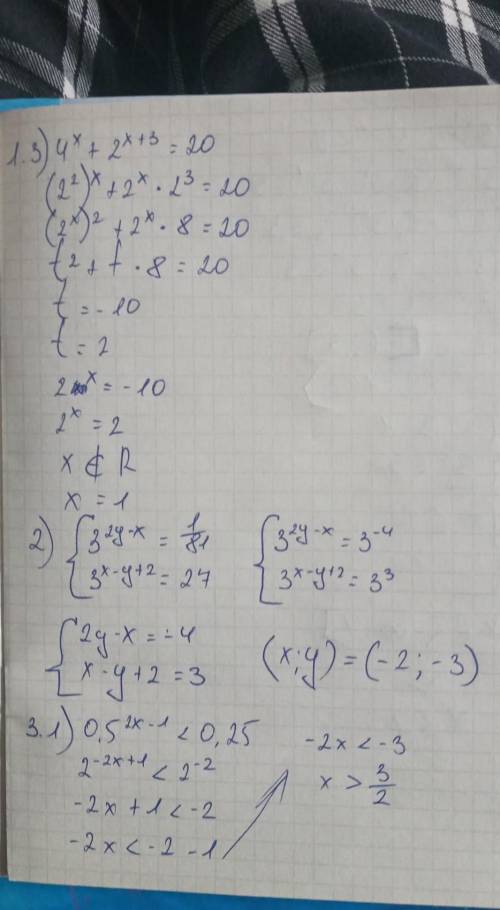 1.3) 4^x + 2^{x+3} = 20
(2^2)^x + 2^x · 2^3 = 20
(2^x)^2 + 2^x · 8 = 20
t^2 + t · 8 = 20
t = -10
t = 2
2^x = -10
2^x = 2
x ∉ R
x = 1
2) { 3^{2y-x} = 1/81 { 3^{2y-x} = 3^{-4}
3^{x-y+2} = 27 3^{x-y+2} = 3^3
{ 2y-x = -4
x-y+2 = 3 (x;y) = (-2;-3)
3.1) 0,5^{2x-1} < 0,25
2^{-2x+1} < 2^{-2}
-2x + 1 < -2
-2x < -2 -1
-2x < -3
x > 3/2